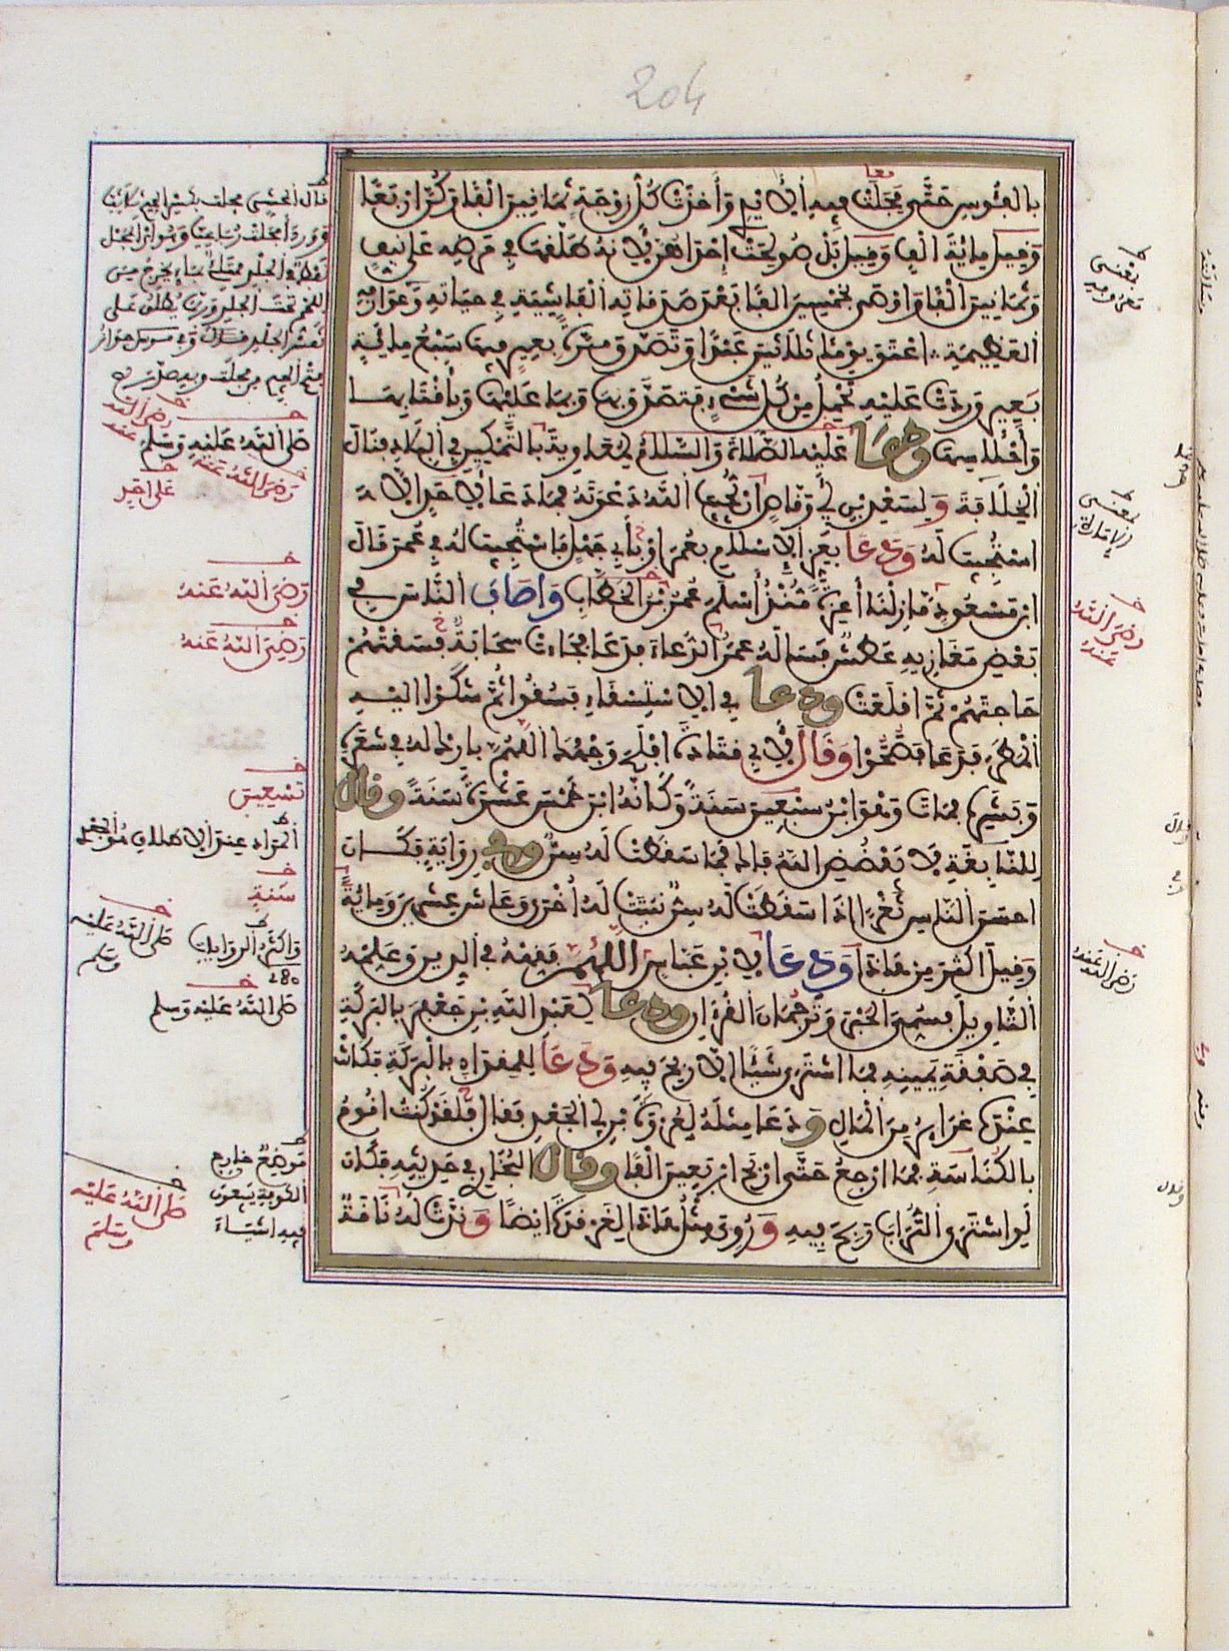 204
بالفؤوس حتى مجلت فيه الأيدي وأخذت كل زوجة ثمانين ألفا وكن أربعا
وقيل مائة ألف وقيل بل صولحت إحداهن لأنه طلقها في مرضه على نيف
وثمانين ألفا وأوصى بخمسين ألفا بعد صدقاته الفاشية في حياته وعوارفه
العظيمة أعتق يوما ثلاثين عبدا وتصدق مرة بعير فيها سبع مائة
بعير وردت عليه تحمل من كل شيء فتصدق بها وبما عليها وبأقتابها
وأحلاسها ودعا عليه الصلاة والسلام لمعاوية بالتمكين في البلاد فنال
الخلافة ولسعد بن أبي وقاص أن يجيب الله دعوته فما دعا على أحد إلا
استجيب له ودعا بعز الإسلام بعمر أو بأبي جهل فاستجيب له في عمر قال
ابن مسعود ما زلنا أعزة منذ أسلم عمر بن الخطاب وأصاب الناس في
بعض مغازيه عطش فسأله عمر الدعاء فدعا فجاءت سحابة فسقتهم
حاجتهم ثم أقلعت ودعا في الاستسقاء فسقوا ثم شكوا إليه
المطر فدعا فصحوا وقال لأبي قتادة أفلح وجهك اللهم بارك له في شعره
وبشره فمات وهو ابن سبعين سنة وكأنه ابن خمس عشرة سنة وقال
للنابغة لا يفضض الله فاك فما سقطت له سن وفي رواية فكان
أحسن الناس ثغرا إذا سقطت له سن نبتت له أخرى وعاش عشرين ومائة
وقيل أكثر من هذا ودعا لابن عباس اللهم فقهه في الدين وعلمه
التأويل فسمي الحبر وترجمان القرآن ودعا لعبد الله بن جعفر بالبركة
في صفقة يمينه فما اشترى شيئا إلا ربح فيه ودعا للمقداد بالبركة فكانت
عنده غرائر من المال ودعا بمثله لعروة بن أبي الجعد فقال فلقد كنت أقوم
بالكناسة فما أرجع حتى أربح أربعين ألفا وقال البخاري في حديثه فكان
لو اشترى التراب ربح فيه وروي مثل هذا لغرقدة أيضا وندت له ناقة
صلى الله عليه وسلم
رضي الله عنه
على أحد
رضي الله عنه
رضي الله عنه
تسعين
سنة
وأكثر الروايات
صلى الله عليه وسلم
صلى الله عليه وسلم
موضع خارج
الكوفة يبيعون
فيه أشياء
صلى الله عليه وسلم
يعني
معروفه
يعني
الإمارة
رضي الله عنه
رضي الله عنه